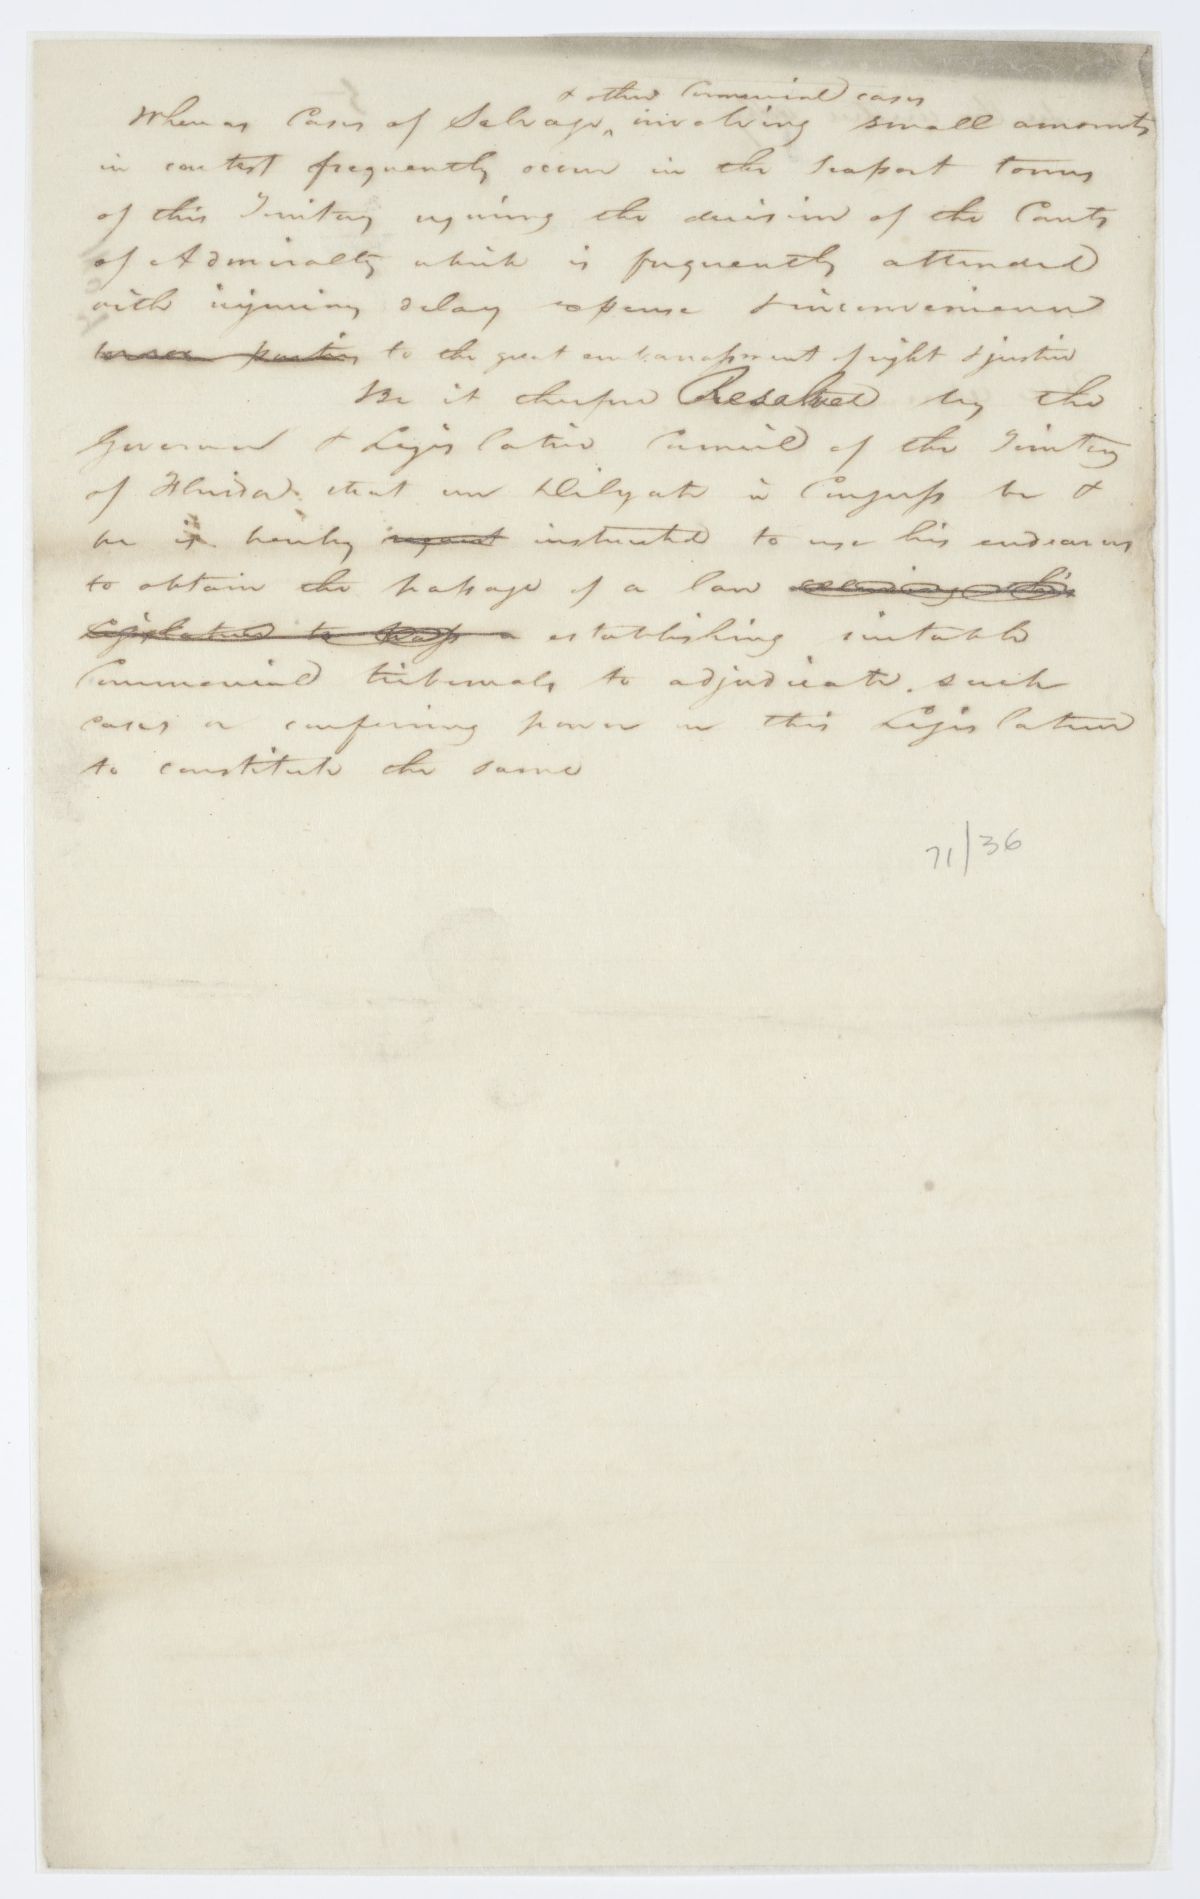 & other Commercial cases
Whereas Cases of Salvage ^ involving small amounts
in contest frequently occur in the seaport towns
of this Territory requiring the decision of the Courts
of Admiralty which is frequently attended
with injurious delay expense & inconvenience
parties to the great embarrassment of right & justice
Be it therefore Resolved by the
Governor & Legislative Council of the Territory
of Florida that our Delegate in Congress be &
he is hereby request instructed to use his endeavors
to obtain the passage of a law this
Legislature to pass a establishing suitable
Commercial tribunals to adjudicate such
cases or conferring power on this Legislature
to constitute the same
71/36